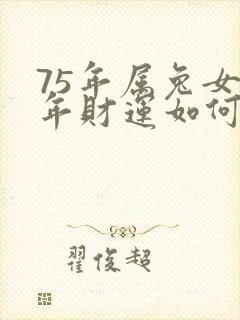 75年属兔女
年财运如何
翟俊超